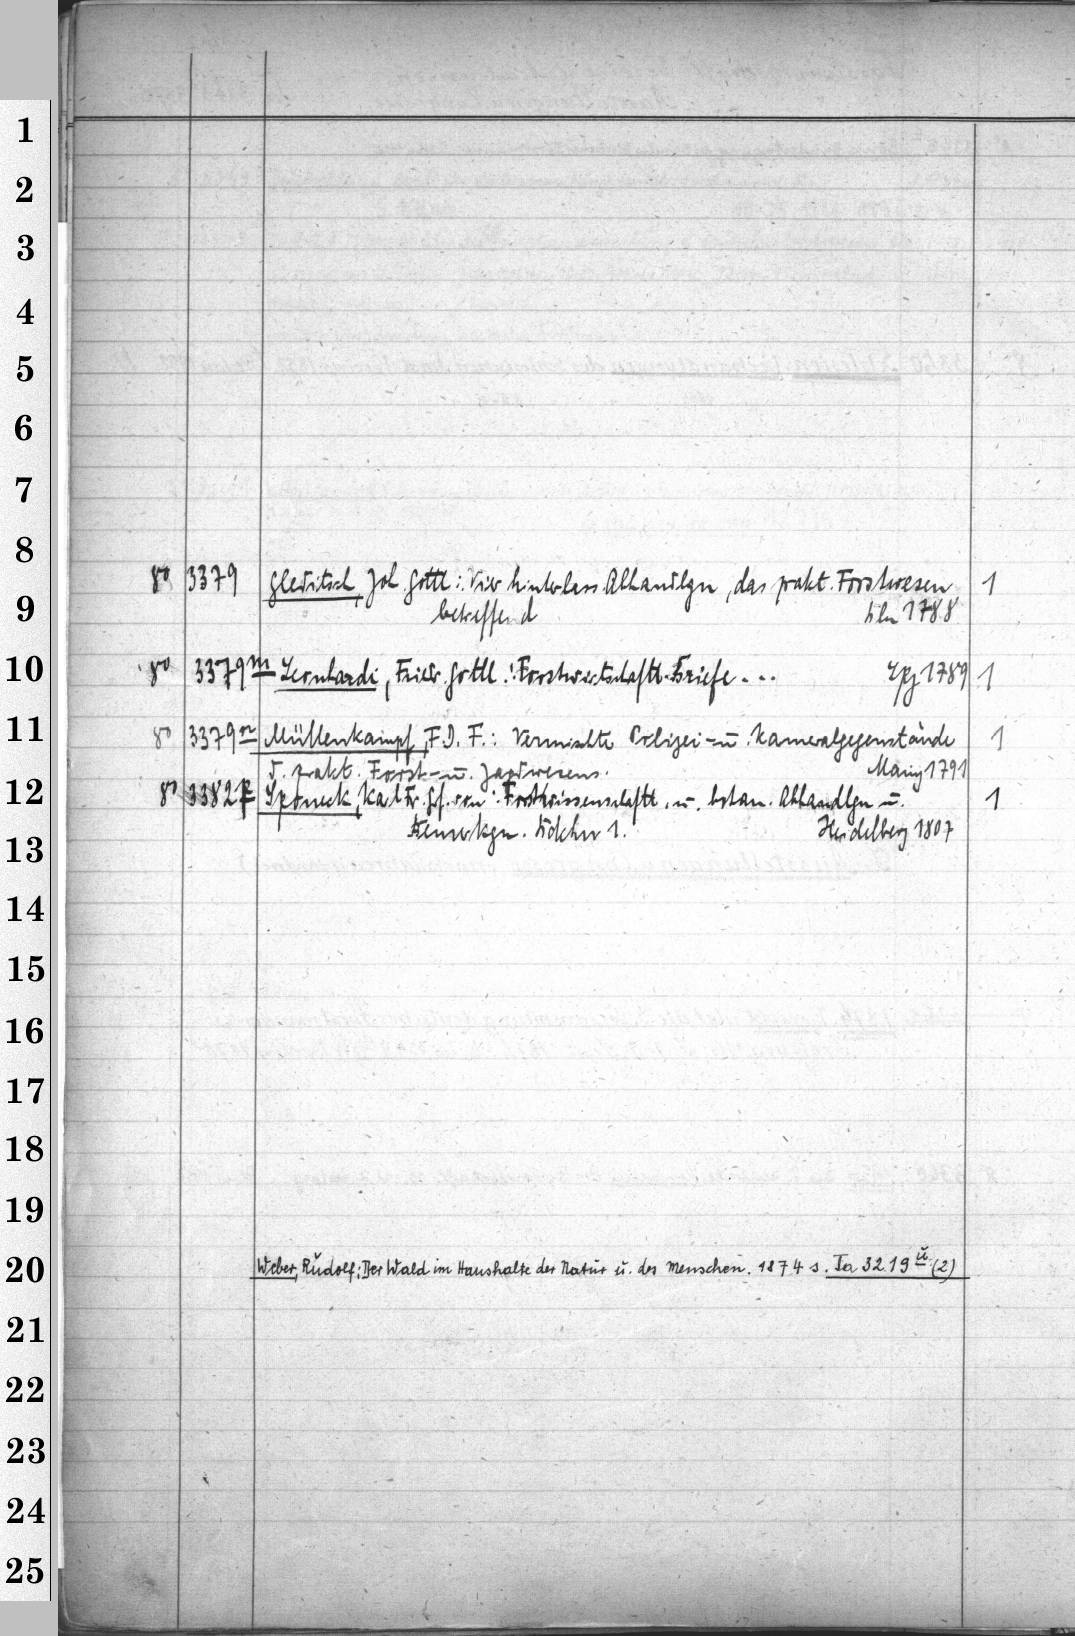 1
2
3
4
5
6
7
8
8° 3379 Gleditsch, Joh. Gottl.: Vier hinterlass. Abhandlgn, das prakt. Forstwesen 1
9
betreffend Bln 1788
10
8° 3379m Leonhardi, Friedr. Gottl.: Forstwirtschaftl. Briefe... Lpz 1789 1
11
8° 3379n Müllenkampf, F. D. F.: Vermischte Polizei- u. Kameralgegenstände 1
d. prakt. Forst- u. Jagdwesens. Mainz 1791
12
8° 3382 Sponeck, Karl Fr. Gf. von: Forstwissenschaftl. u. botan. Abhandlgn u. 1
Bemerkgn. Bdchn 1. Heidelberg 1807
13
14
15
16
17
18
19
20
Weber, Rudolf: Der Wald im Haushalte der Natur u. des Menschen. 1874 s. Ja 3219u (2)
21
22
23
24
25